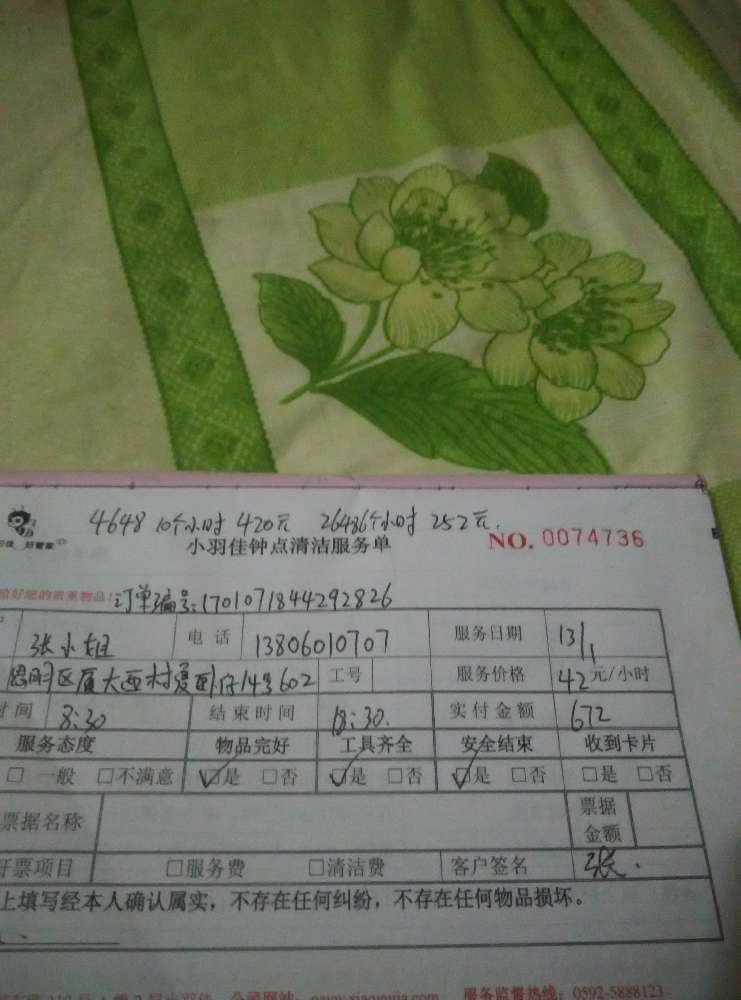 4648 10个小时 420元 2648 6个小时 252元.
好管家
小羽佳钟点清洁服务单 NO. 0074736
订单编号:1701071844292826
张小姐 电话 13806010707 服务日期 13/1
思明区厦大西村 143 602 工号 服务价格 42元/小时
时间 8:30 结束时间 18:30. 实付金额 672
服务态度 物品完好 工具齐全 安全结束 收到卡片
□ 一般 □不满意 ☑是 □否 ☑是 □否 ☑是 □否 □是 □否
票据名称 票据金额
开票项目 □服务费 □清洁费 客户签名 张.
上填写经本人确认属实，不存在任何纠纷，不存在任何物品损坏。
公司网站: 服务监督热线: 0592-5888123